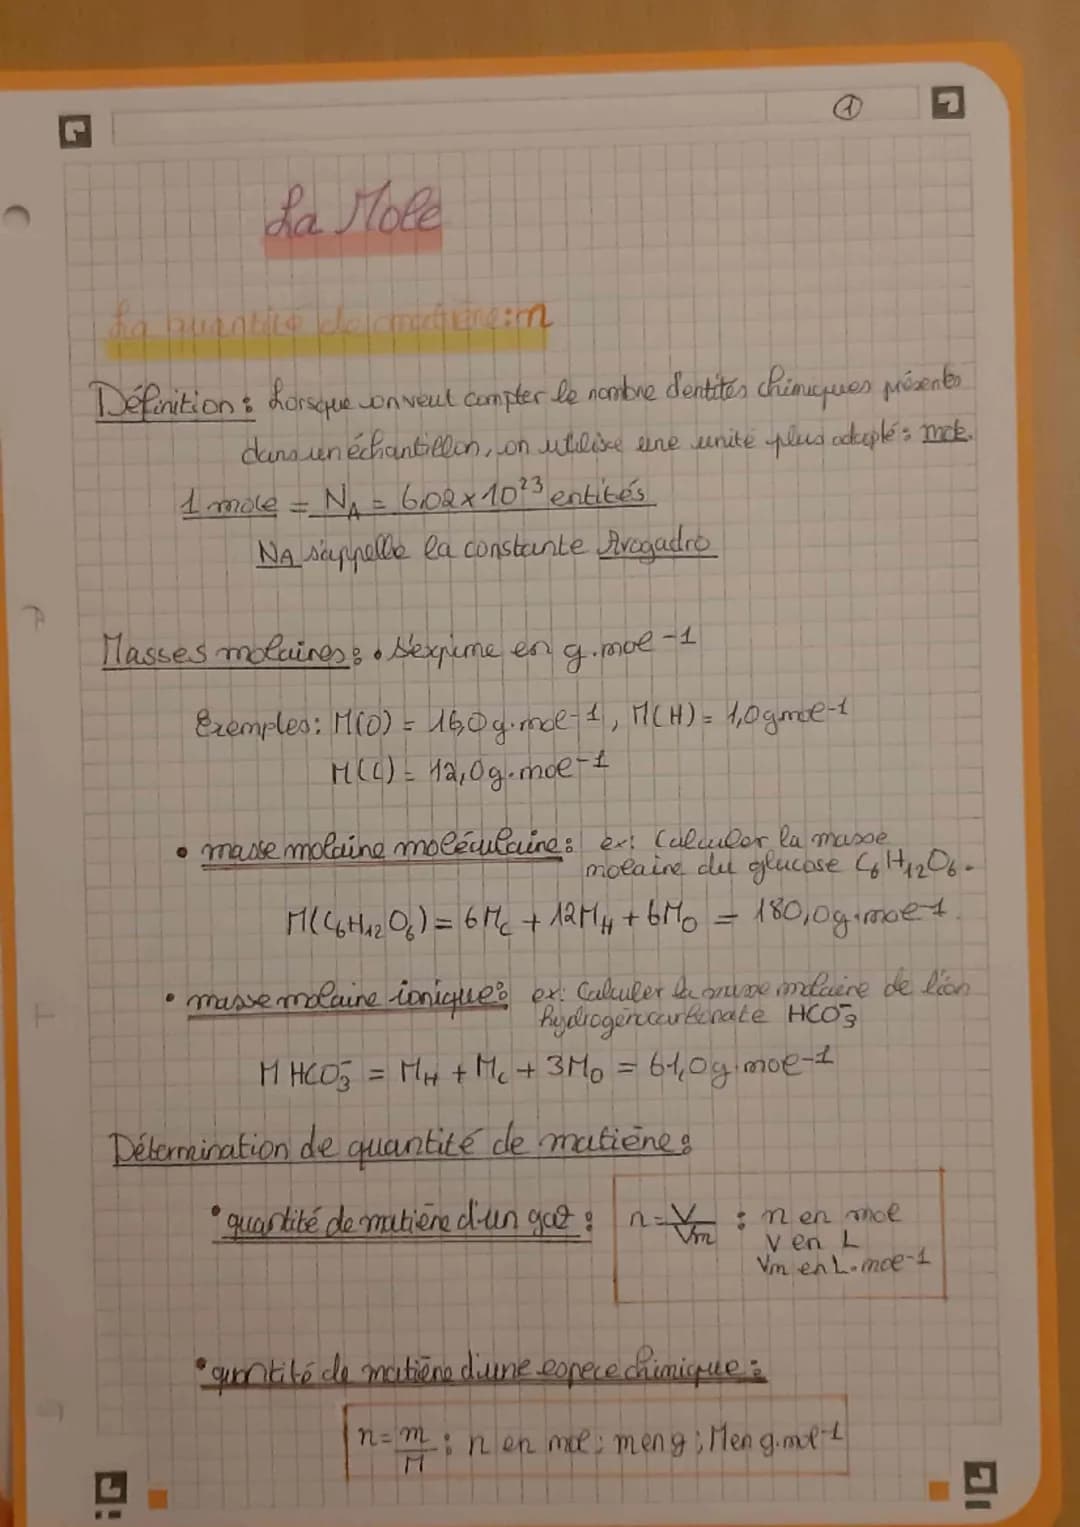 1
La Mole
La quantité de matière : n
Définition : Lorsque on veut compter le nombre d'entités chimiques présents
dans un échantillon, on utilise une unité plus adapté : mol.
1 mole = NA = 6,02 × 10²³ entités
NA s'appelle la constante Avogadro
Masses molaires : • S'exprime en g.mol-1
Exemples : M(O) = 16,0g.mol-1, M(H) = 1,0gmol-1
M(C) = 12,0g.mol-1
• masse molaire moléculaire : ex : Calculer la masse
molaire du glucose C₆H₁₂O₆.
M(C₆H₁₂O₆) = 6Mc + 12MH + 6Mo = 180,0g.mol-1.
• masse molaire ionique : ex : Calculer la masse molaire de l'ion
hydrogénocarbonate HCO₃⁻
M HCO₃⁻ = MH + Mc + 3Mo = 61,0g.mol-1
Détermination de quantité de matière :
• quantité de matière d'un gaz : n = V/Vm : n en mol
V en L
Vm en L.mol-1
• quantité de matière d'une espece chimique :
n = m/M : n en mol ; m en g ; M en g.mol-1